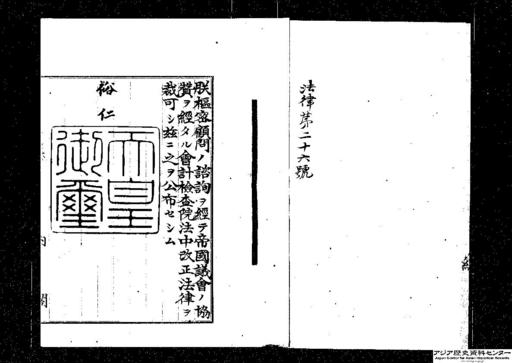 法律第二十六號
朕樞密顧問ノ諮詢ヲ經テ帝國議會ノ協
贊ヲ經タル會計檢查院法中改正法律ヲ
裁可シ茲ニ之ヲ公布セシム
裕仁
天皇
御璽
内閣
アジア歴史資料センター
Japan Center for Asian Historical Records